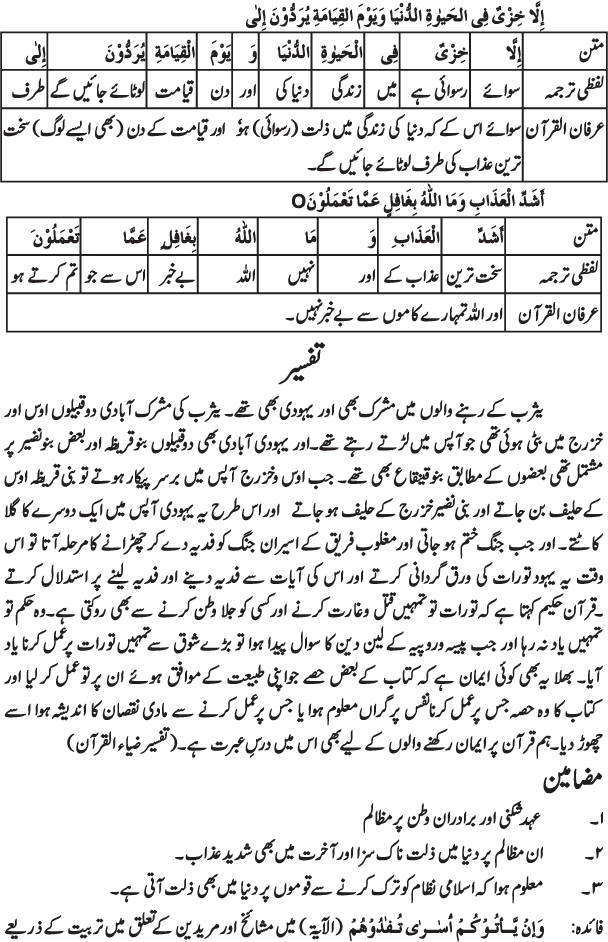 اِلَّا خِزْیٌ فِی الْحَیٰوةِ الدُّنْیَا وَیَوْمَ الْقِیَامَةِ یُرَدُّوْنَ اِلٰی
متن اِلَّا خِزْیٌ فِی الْحَیٰوةِ الدُّنْیَا وَ یَوْمَ الْقِیَامَةِ یُرَدُّوْنَ اِلٰی
لفظی ترجمہ سوائے رسوائی ہے میں زندگی دنیا کی اور دن قیامت لوٹائے جائیں گے طرف
عرفان القرآن سوائے اس کے کہ دنیا کی زندگی میں ذلت (رسوائی) ہو٬ اور قیامت کے دن (بھی ایسے لوگ) سخت
ترین عذاب کی طرف لوٹائے جائیں گے۔
اَشَدِّ الْعَذَابِ وَمَا اللّٰهُ بِغَافِلٍ عَمَّا تَعْمَلُوْنَO
متن اَشَدِّ الْعَذَابِ وَ مَا اللّٰهُ بِغَافِلٍ عَمَّا تَعْمَلُوْنَ
لفظی ترجمہ سخت ترین عذاب کے اور نہیں اللہ بے خبر اس سے جو تم کرتے ہو
عرفان القرآن اور اللہ تمہارے کاموں سے بے خبر نہیں۔
تفسیر
یثرب کے رہنے والوں میں مشرک بھی اور یہودی بھی تھے۔ یثرب کی مشرک آبادی دو قبیلوں اوس اور
خزرج میں بٹی ہوئی تھی جو آپس میں لڑتے رہتے تھے۔اور یہودی آبادی بھی دو قبیلوں بنو قریظہ اور بعض بنو نضیر پر
مشتمل تھی بعضوں کے مطابق بنو قینقاع بھی تھے۔ جب اوس و خزرج آپس میں برسر پیکار ہوتے تو بنی قریظہ اوس
کے حلیف بن جاتے اور بنی نضیر خزرج کے حلیف ہو جاتے اور اس طرح یہ یہودی آپس میں ایک دوسرے کا گلا
کاٹتے۔ اور جب جنگ ختم ہو جاتی اور مغلوب فریق کے اسیران جنگ کو فدیہ دے کر چھڑانے کا مرحلہ آتا تو اس
وقت یہ یہود تورات کی ورق گردانی کرتے اور اس کی آیات سے فدیہ دینے اور فدیہ لینے پر استدلال کرتے
۔قرآن حکیم کہتا ہے کہ تورات تو تمہیں قتل و غارت کرنے اور کسی کو جلا وطن کرنے سے بھی روکتی ہے۔وہ حکم تو
تمہیں یاد نہ رہا اور جب پیسہ و روپیہ کے لین دین کا سوال پیدا ہوا تو بڑے شوق سے تمہیں تورات پر عمل کرنا یاد
آیا۔ بھلا یہ بھی کوئی ایمان ہے کہ کتاب کے بعض حصے جو اپنی طبیعت کے موافق ہوئے ان پر تو عمل کر لیا اور
کتاب کا وہ حصہ جس پر عمل کرنا نفس پر گراں معلوم ہوا یا جس پر عمل کرنے سے مادی نقصان کا اندیشہ ہوا اسے
چھوڑ دیا۔ہم قرآن پر ایمان رکھنے والوں کے لیے بھی اس میں درسِ عبرت ہے۔(تفسیر ضیاء القرآن)
مضامین
۱۔ عہد شکنی اور برادران وطن پر مظالم
۲۔ ان مظالم پر دنیا میں ذلت ناک سزا اور آخرت میں بھی شدید عذاب۔
۳۔ معلوم ہوا کہ اسلامی نظام کو ترک کرنے سے قوموں پر دنیا میں بھی ذلت آتی ہے۔
فائدہ: وَاِنْ یَّاْتُوْکُمْ اُسٰرٰی تُفٰدُوْهُمْ (الآیة) میں مشائخ اور مریدین کے تعلق میں تربیت کے ذریعے